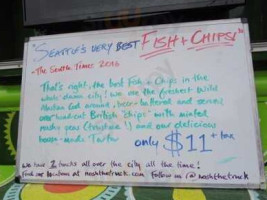 "SEATTLE'S VERY BEST FISH + CHIPS!"
- THE SEATTLE TIMES 2013
That's right, the best Fish & Chips in the
whole damn city! We use the freshest Wild
Alaskan Cod around, beer-battered and served
over hand-cut British "chips" with minted
mushy peas (trust us!) and our delicious
house-made Tartar
only $11 + tax
We have 2 trucks all over the city all the time!
Find our locations at noshthetruck.com Follow us @noshthetruck